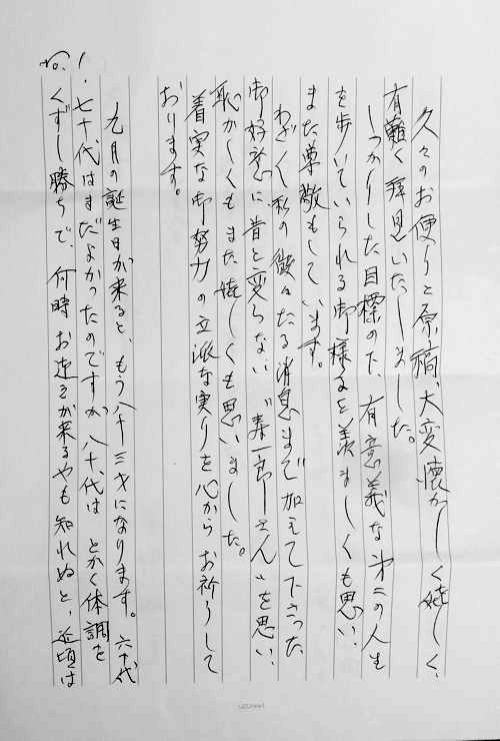 久々のお便りと原稿、大変懐かしく嬉しく、
有難く拝見いたしました。
しっかりした目標の下、有意義な第二の人生
を歩いていられる御様子を羨ましくも思い、
また尊敬もしています。
わざ〱私の微々たる消息まで加えて下さった
御好意に昔と変らない〝寿一郎さん〟を思い、
恥かしくもまた嬉しくも思いました。
着実な御努力の立派な実りを心からお祈りして
おります。
九月の誕生日が来ると、もう八十三才になります。六十代
、七十代はまだよかったのですが八十代は とかく体調を
くずし勝ちで、何時お迎えが来るやも知れぬと、近頃は